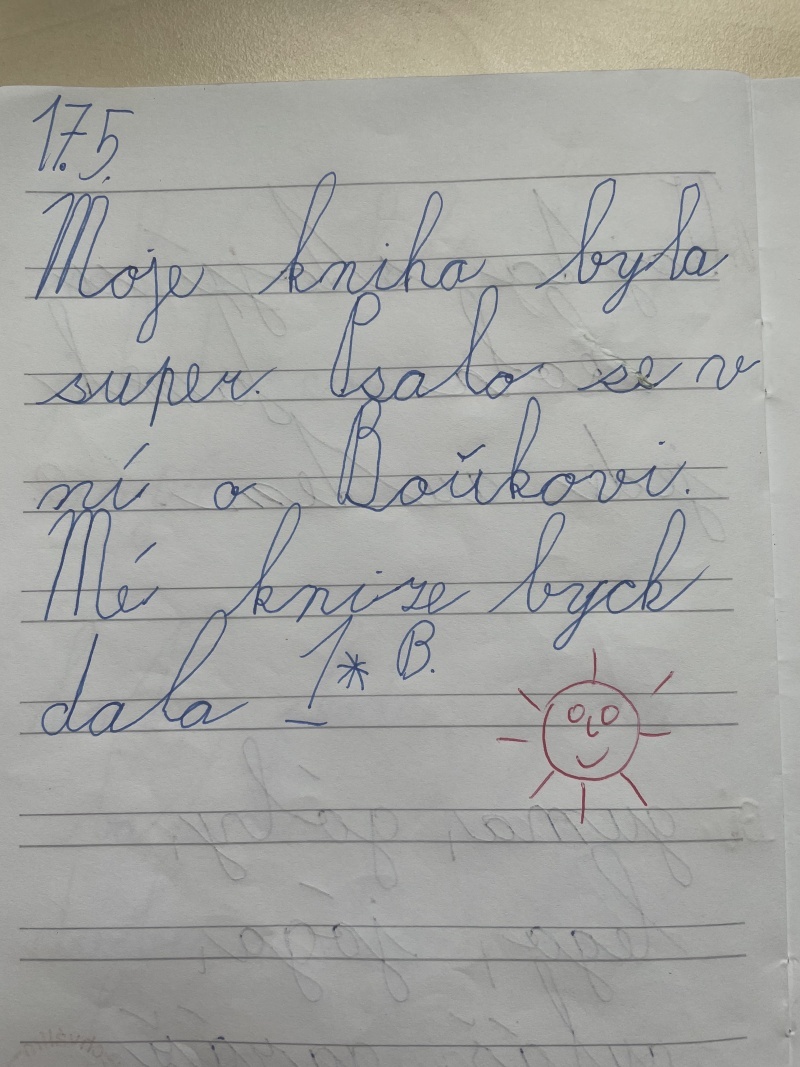 17.5.
Moje kniha byla
super. Psalo se v
ní o Boŭkovi.
Mé knize bych
dala 1* B.